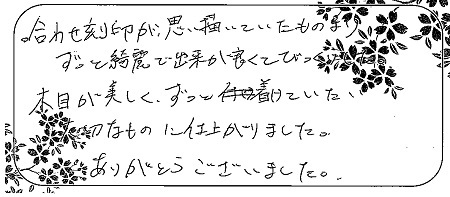 合わせ刻印が、思い描いていたものより
ずっと綺麗で出来が良くてびっくり
木目が美しく、ずっと着けていたい
大切なものに仕上がりました。
ありがとうございました。